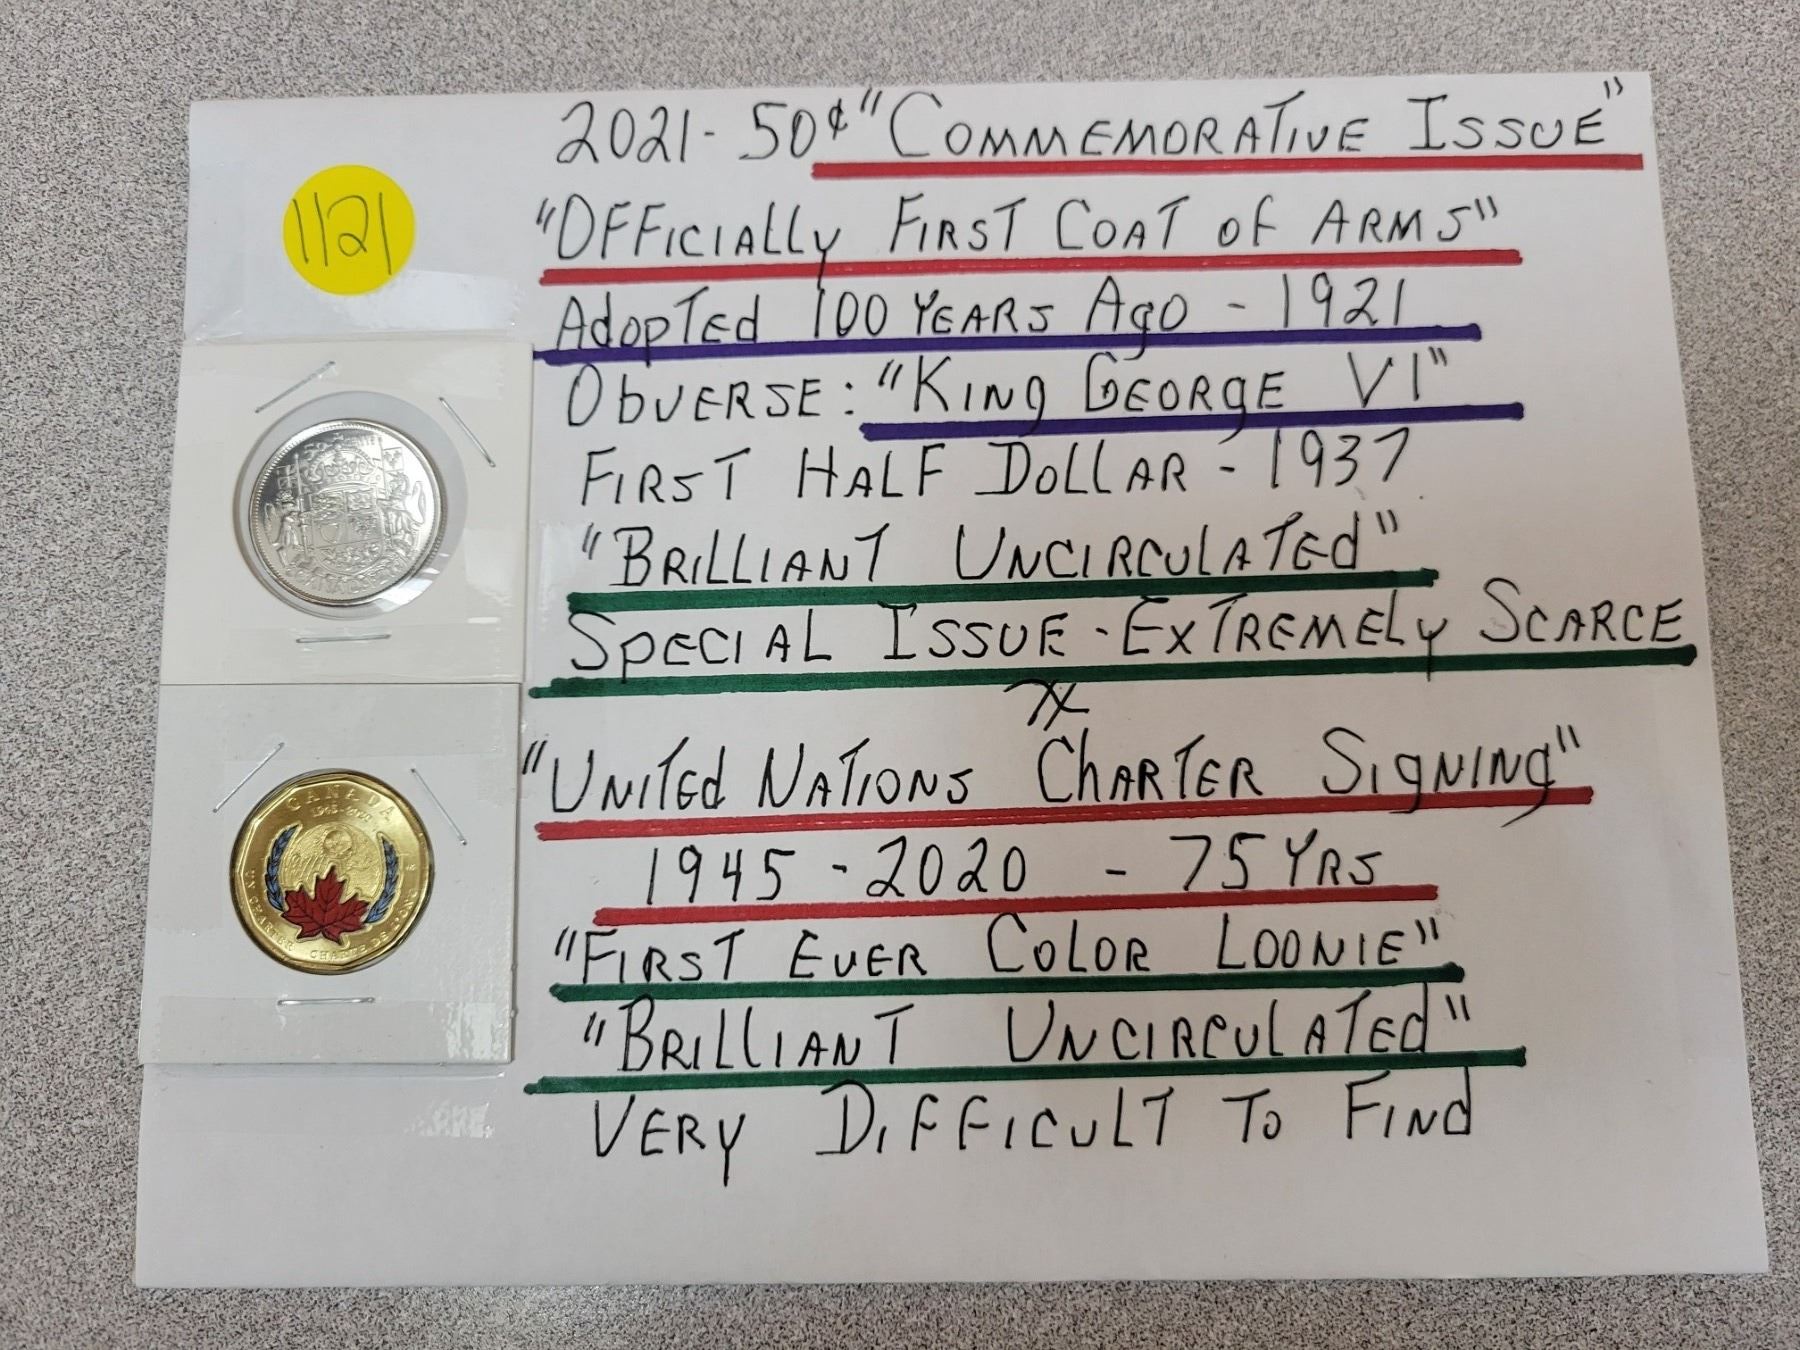 1121
2021 - 50¢ "COMMEMORATIVE ISSUE"
"OFFICIALLY FIRST COAT OF ARMS"
ADOPTED 100 YEARS AGO - 1921
OBVERSE: "KING GEORGE VI"
FIRST HALF DOLLAR - 1937
"BRILLIANT UNCIRCULATED"
SPECIAL ISSUE - EXTREMELY SCARCE
"UNITED NATIONS CHARTER SIGNING"
1945 - 2020 - 75 YRS
"FIRST EVER COLOR LOONIE"
"BRILLIANT UNCIRCULATED"
VERY DIFFICULT TO FIND
CANADA
1945-2020
UN CHARTER CHARTE DE L'ONU